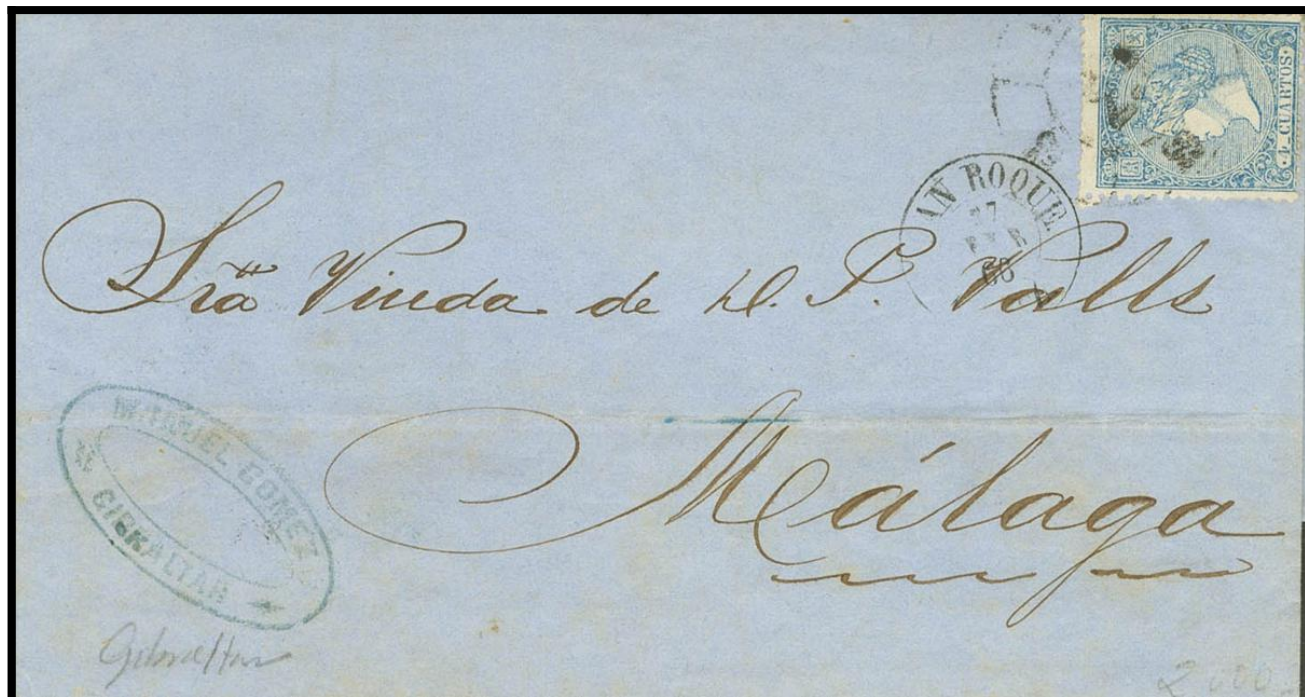 4 CUARTOS
SAN ROQUE
27
68
Sra Viuda de D. P. Valls
Málaga
MANUEL GOMEZ
GIBRALTAR
Gibraltar